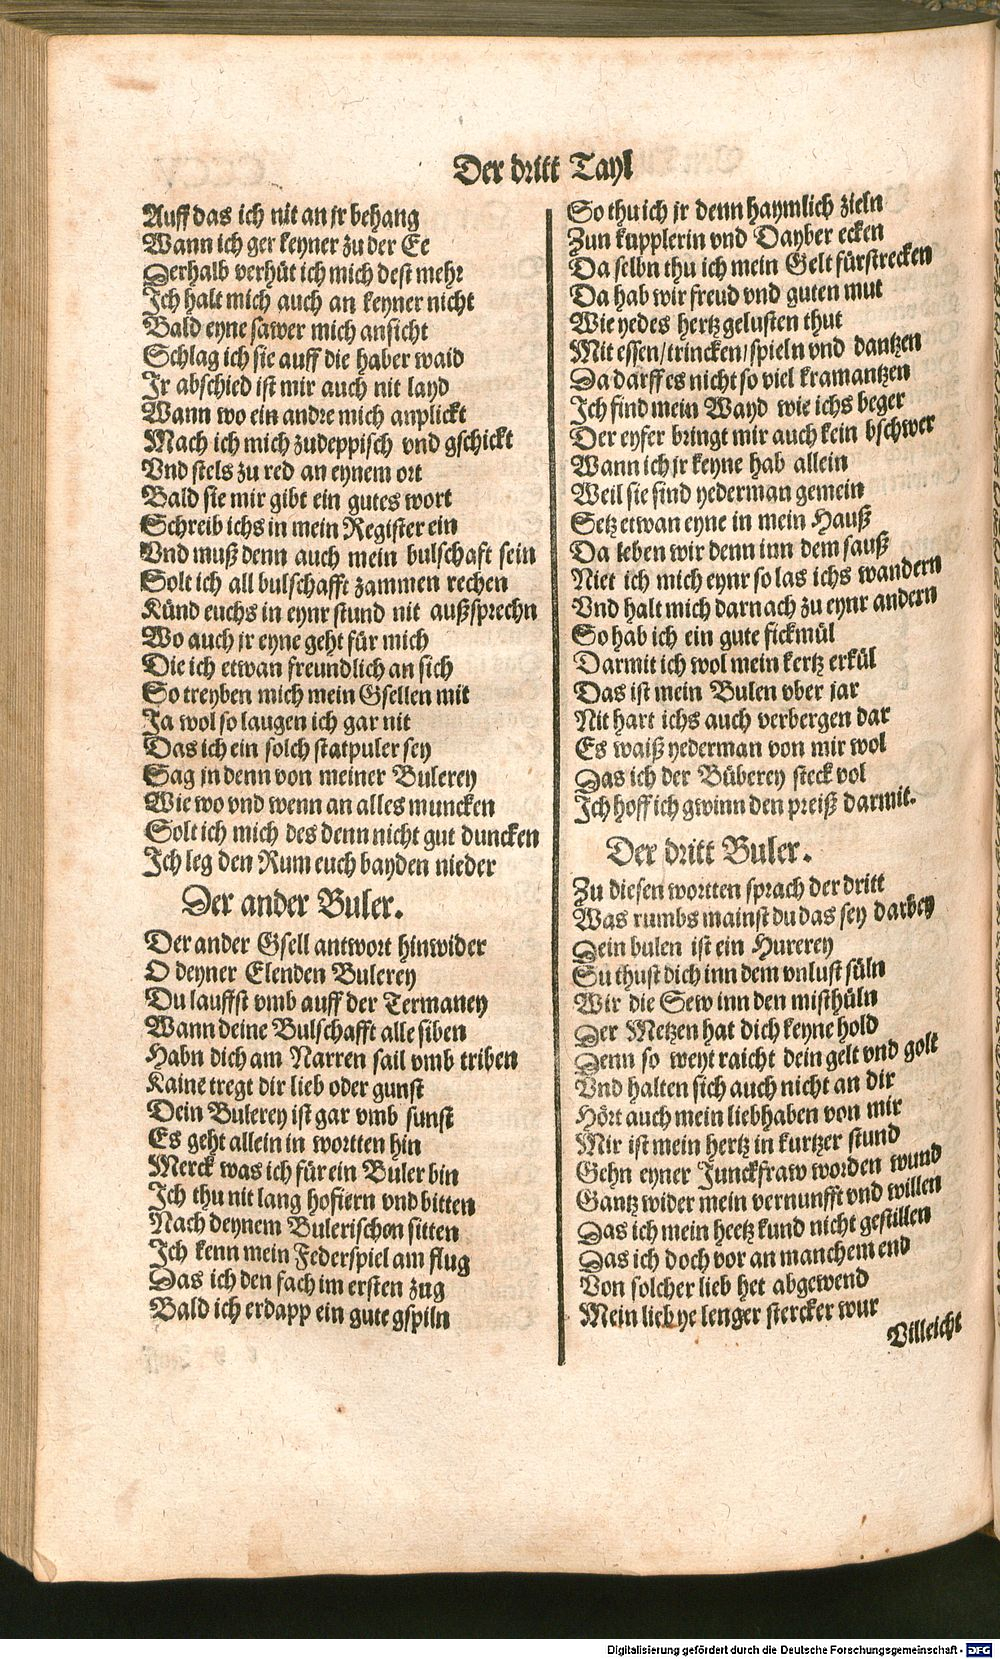 Der dritt Tayl
Auff das ich nit an jr behang
Wann ich ger keyner zu der Ee
Derhalb verhüt ich mich dest mehr
Ich halt mich auch an keyner nicht
Bald eyne sawer mich ansicht
Schlag ich sie auff die haber waid
Ir abschied ist mir auch nit layd
Wann wo ein andre mich anplickt
Mach ich mich zudeppisch vnd gschickt
Vnd stels zu red an eynem ort
Bald sie mir gibt ein gutes wort
Schreib ichs in mein Register ein
Vnd muß denn auch mein bulschaft sein
Solt ich all bulschafft zammen rechen
Künd euchs in eynr stund nit außsprechn
Wo auch jr eyne geht für mich
Die ich etwan freundlich an sich
So treyben mich mein Gsellen mit
Ja wol so laugen ich gar nit
Das ich ein solch statpuler sey
Sag in denn von meiner Bulerey
Wie wo vnd wenn an alles muncken
Solt ich mich des denn nicht gut duncken
Ich leg den Rum euch bayden nieder
Der ander Buler.
Der ander Gsell antwort hinwider
O deyner Elenden Bulerey
Du lauffst vmb auff der Termaney
Wann deine Bulschafft alle siben
Habn dich am Narren sail vmb triben
Kaine tregt dir lieb oder gunst
Dein Bulerey ist gar vmb sunst
Es geht allein in wortten hin
Merck was ich für ein Buler bin
Ich thu nit lang hofiern vnd bitten
Nach deynem Bulerischen sitten
Ich kenn mein Federspiel am flug
Das ich den fach im ersten zug
Bald ich erdapp ein gute gspiln
So thu ich jr denn haymlich zieln
Zun kupplerin vnd Dayber ecken
Da selbn thu ich mein Gelt fürstrecken
Da hab wir freud vnd guten mut
Wie yedes hertz gelusten thut
Mit essen/trincken/spieln vnd dantzen
Da darff es nicht so viel kramantzen
Ich find mein Wayd wie ichs beger
Der eyfer bringt mir auch kein bschwer
Wann ich jr keyne hab allein
Weil sie sind yederman gemein
Setz etwan eyne in mein Hauß
Da leben wir denn inn dem sauß
Niet ich mich eynr so las ichs wandern
Vnd halt mich darnach zu eynr andern
So hab ich ein gute fickmül
Darmit ich wol mein kertz erkül
Das ist mein Bulen vber jar
Nit hart ichs auch verbergen dar
Es waiß yederman von mir wol
Das ich der Büberey steck vol
Ich hoff ich gwinn den preiß darmit.
Der dritt Buler.
Zu diesen wortten sprach der dritt
Was rumbs mainst du das sey darbey
Dein bulen ist ein Hurerey
Su thust dich inn dem vnlust süln
Wir die Sew inn den misthüln
Der Metzen hat dich keyne hold
Denn so weyt raicht dein gelt vnd golt
Vnd halten sich auch nicht an dir
Hört auch mein liebhaben von mir
Mir ist mein hertz in kurtzer stund
Gehn eyner Junckfraw worden wund
Gantz wider mein vernunfft vnd willen
Das ich mein heetz kund nicht gestillen
Das ich doch vor an manchem end
Von solcher lieb het abgewend
Mein lieb ye lenger stercker wur
Villeicht
Digitalisierung gefördert durch die Deutsche Forschungsgemeinschaft - DFG